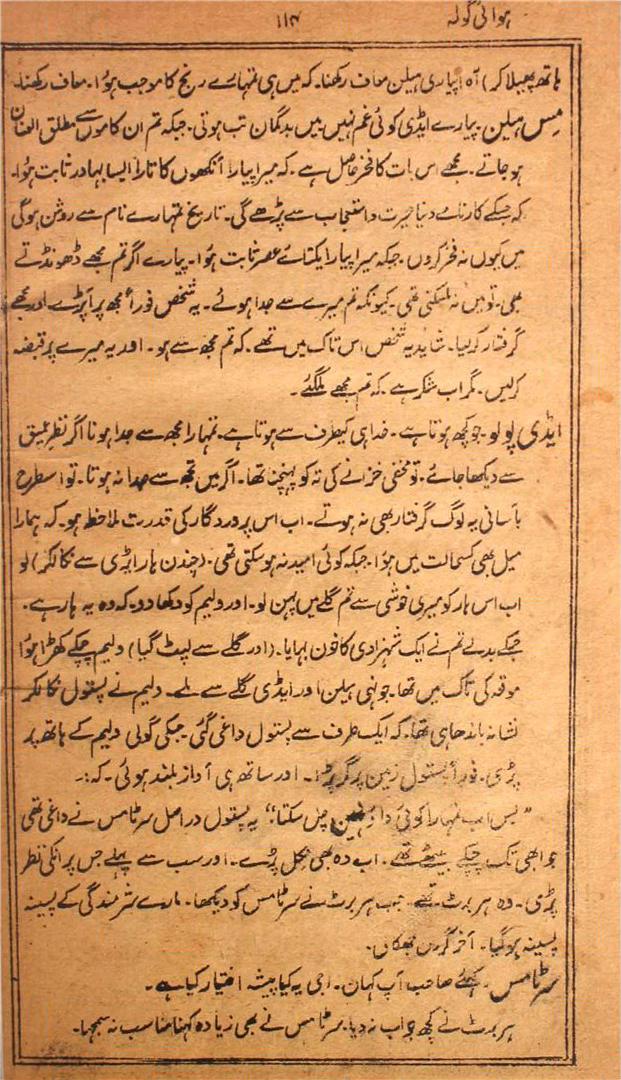 ہوائی گولہ ۱۱۴
ہاتھ پھیلا کر) آہ! پیاری ہیلن معاف رکھنا۔ کہ میں ہی تمہارے رنج کا موجب ہؤا۔ معاف رکھنا۔
مِس ہیلن۔ پیارے ایڈی کوئی غم نہیں میں بدگمان تب ہوتی۔ جبکہ تم ان کاموں سے مطلق العنان
ہو جاتے۔ مجھے اس بات کا فخر حاصل ہے۔ کہ میرا پیارا آنکھوں کا تارا ایسا بہادر ثابت ہؤا۔
کہ جسکے کارنامے دنیا حیرت و استعجاب سے پڑھے گی۔ تاریخ تمہارے نام سے روشن ہوگی
میں کیوں نہ فخر کروں۔ جبکہ میرا پیارا یکتائے عصر ثابت ہؤا۔ پیارے اگر تم مجھے ڈھونڈتے
بھی۔ تو میں نہ مل سکتی تھی۔ کیونکہ تم میرے سے جدا ہوئے۔ یہ شخص فوراً مجھ پر آپڑے اور مجھے
گرفتار کر لیا۔ شاید یہ شخص اس تاک میں تھے۔ کہ تم مجھ سے ہو۔ اور یہ میرے پر قبضہ
کرلیں۔ مگر اب شکر ہے۔ کہ تم مجھے ملگئے۔
ایڈی پولو۔ جو کچھ ہوتا ہے۔ خدا ہی کیطرف سے ہوتا ہے۔ تمہارا مجھ سے جدا ہونا اگر نظرِ عمیق
سے دیکھا جائے۔ تو مخفی خزانے کی تہ کو پہنچنا تھا۔ اگر میں تجھ سے جدا نہ ہوتا۔ تو اسطرح
بآسانی یہ لوگ گرفتار بھی نہ ہوتے۔ اب اس پروردگار کی قدرت ملاحظہ ہو۔ کہ ہمارا
میل بھی کس حالت میں ہؤا۔ جبکہ کوئی امید نہ ہو سکتی تھی۔ (چندن ہار ایڈی سے نکالکر) لو
اب اس ہار کو میری خوشی سے تم گلے میں پہن لو۔ اور ولیم کو دکھا دو۔ کہ وہ یہ ہار ہے۔
جسکے بدلے تم نے ایک شہزادی کا خون بہایا۔ (اور گلے سے لپٹ گیا) ولیم چپکے کھڑا ہؤا
موقہ کی تاک میں تھا۔ جونہی ہیلن اور ایڈی گلے سے ملے۔ ولیم نے پستول نکالکر
نشانہ باندھا ہی تھا۔ کہ ایک طرف سے پستول داغی گئی۔ جسکی گولی ولیم کے ہاتھ پر
پڑی۔ فوراً پستول زمین پر گر پڑا۔ اور ساتھ ہی آواز بلند ہوئی۔ کہ:۔
"بس اب تمہارا کوئی داؤ نہیں چل سکتا:" یہ پستول دراصل سرٹامس نے داغی تھی
جو ابھی تک چپکے بیٹھے تھے۔ اب وہ بھی نکل پڑے۔ اور سب سے پہلے جس پر انکی نظر
پڑی۔ وہ ہربرٹ تھے۔ جب ہربرٹ نے سرٹامس کو دیکھا۔ مارے شرمندگی کے پسینہ
پسینہ ہوگیا۔ آخر گردن جھکالی۔
سرٹامس۔ کہئے صاحب آپ کہاں۔ اجی یہ کیا پیشہ اختیار کیا ہے۔
ہربرٹ نے کچھ جواب نہ دیا۔ سرٹامس نے بھی زیادہ کہنا مناسب نہ سمجہا۔